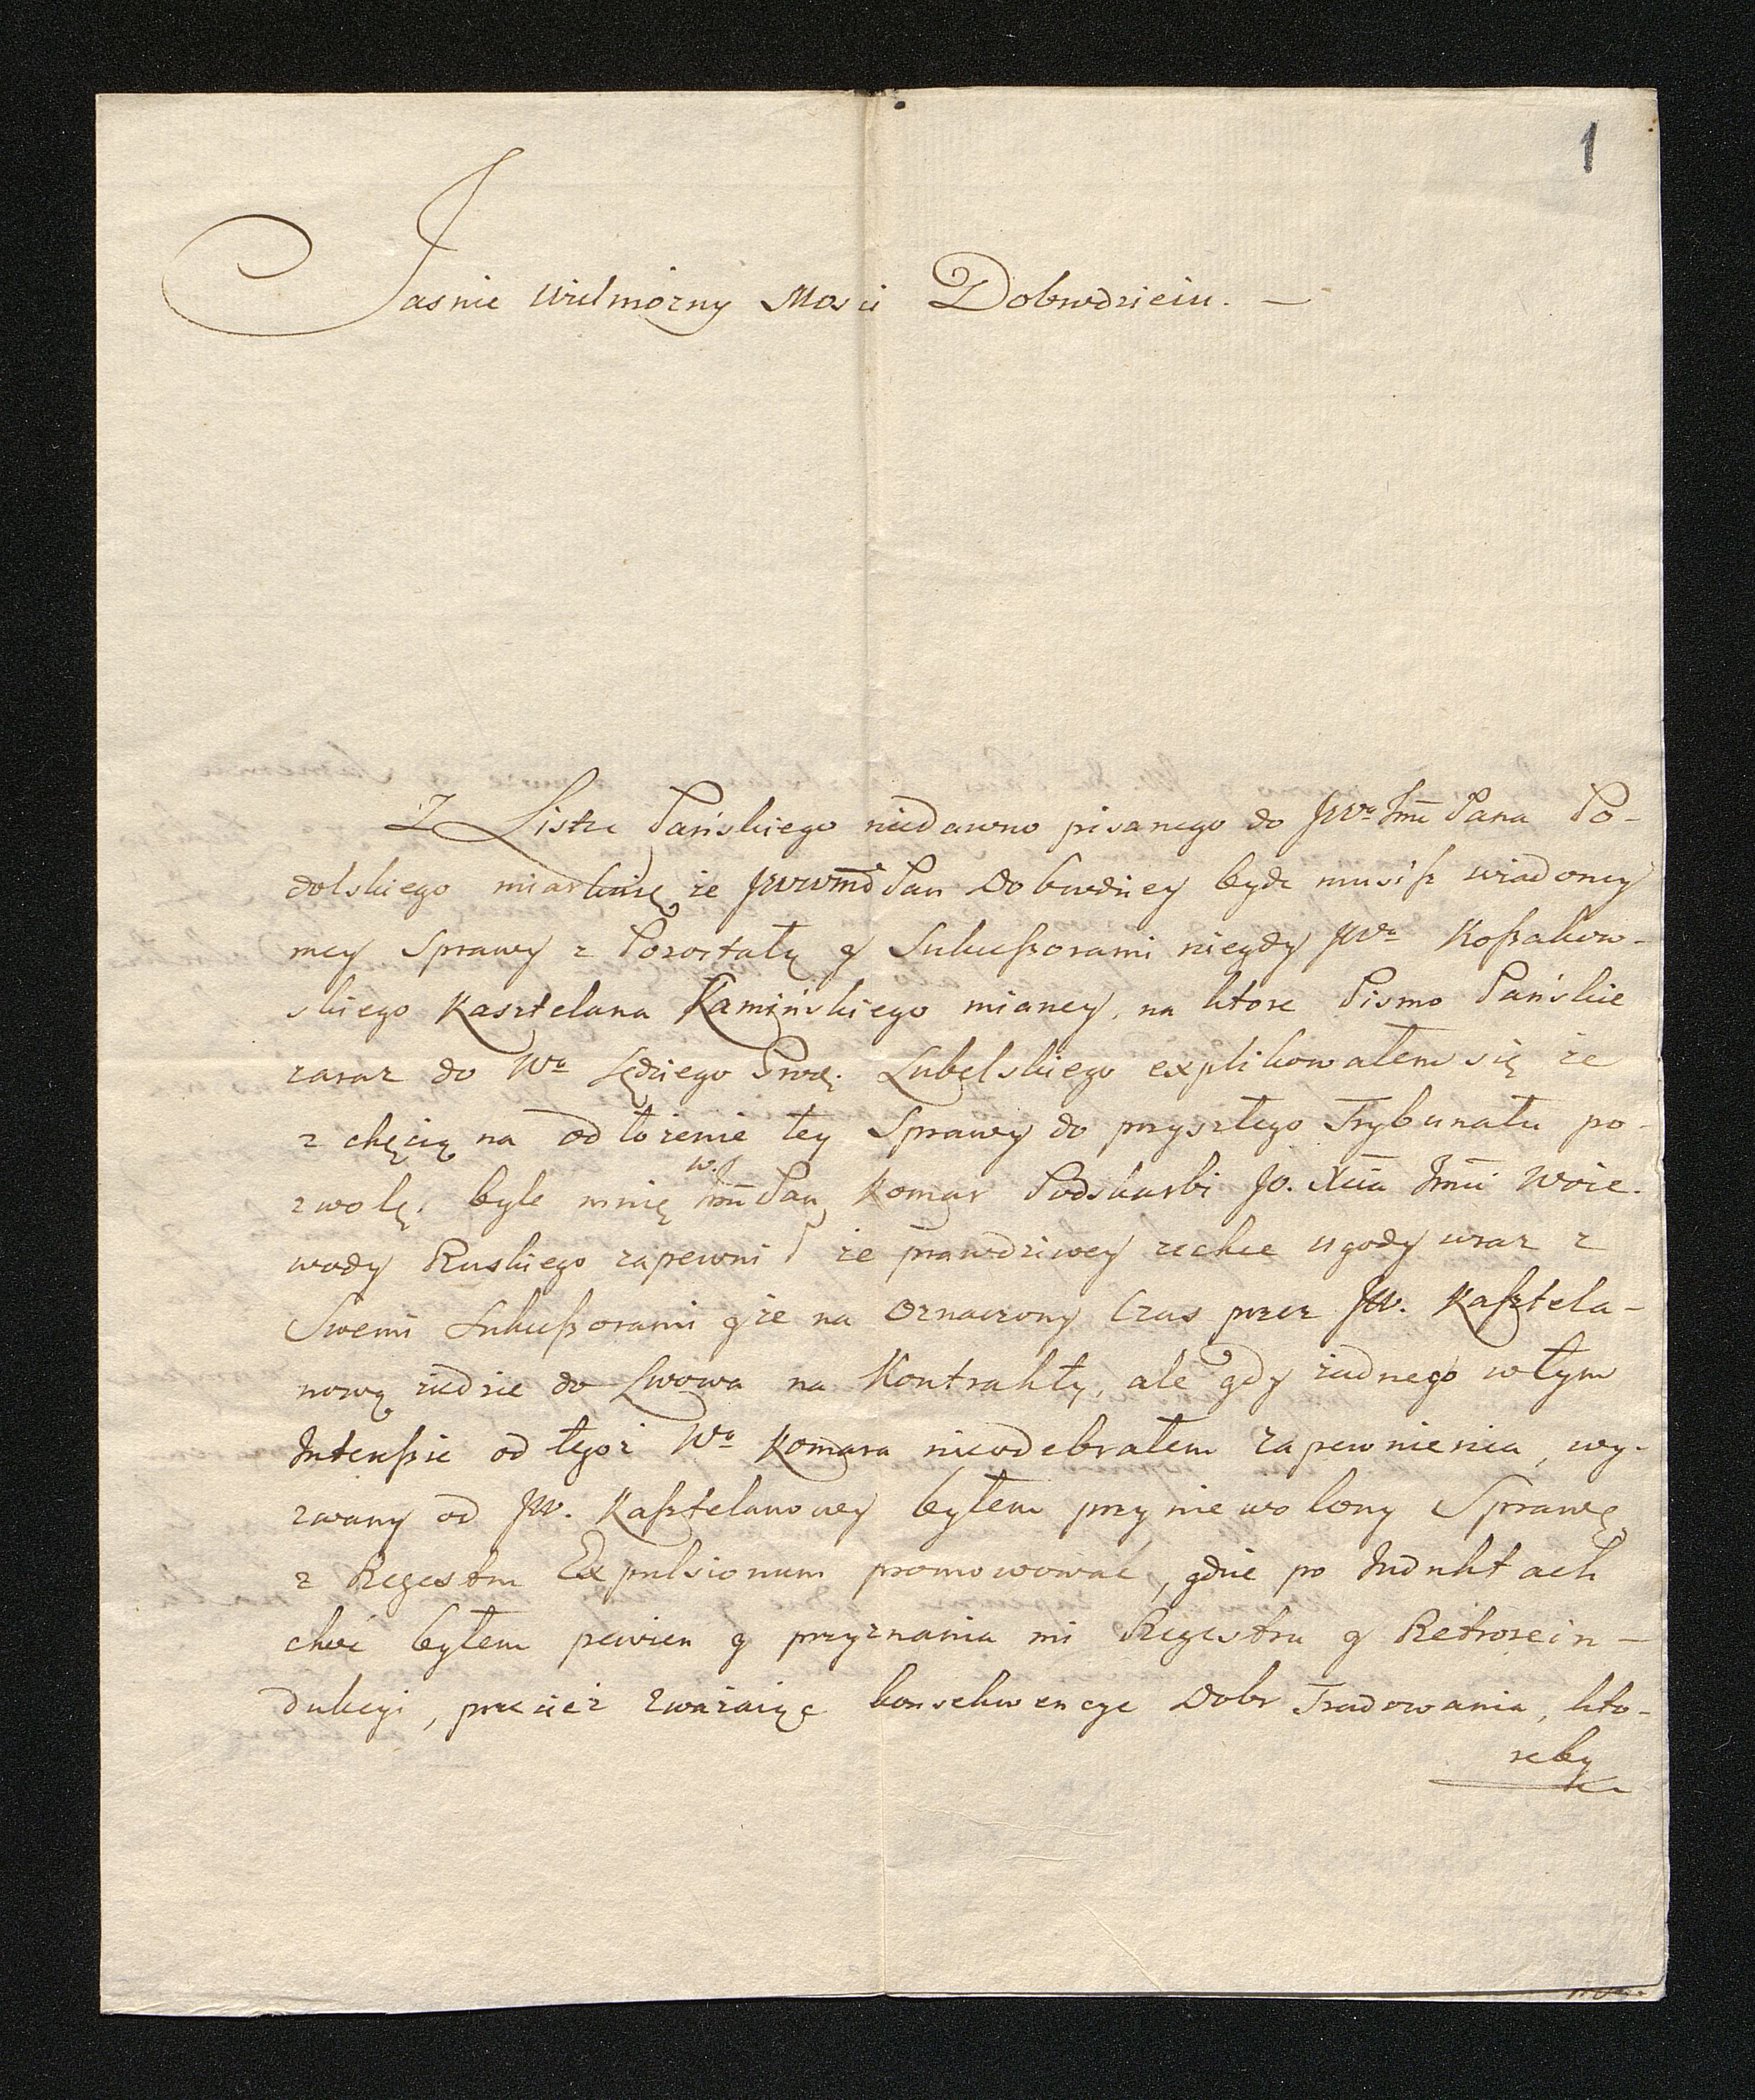 1
Jasnie Wielmożny Mosci Dobrodzieiu. —
Z Listu Pańskiego niedawno pisanego do JWo Jmć Pana Po-
dolskiego miarkuię że JWWMć Pan Dobrodziey bydź musisz wiadomy
mey Sprawy z Pozostałą y Sukceßorami niegdy JWo Koßakow-
skiego Kasztelana Kamińskiego mianey, na ktore Pismo Pańskie
zaraz do Wo Sędziego Lubelskiego explikowałem się że
z chęcią na odłożenie tey Sprawy do przyszłego Trybunału po-
zwolę, byle mnię W. Jmć Pan Komar Podskarbi JO. Xcia Jmci Woie-
wody Ruskiego zapewnił że prawdziwey zechce ugody wraz z
Swemi Sukceßorami y że na Oznaczony Czas przez JW. Kaßztela-
nową ziedzie do Lwowa na Kontrakty, ale gdy żadnego w tym
Intereßie od tegoż Wo Komara nieodebrałem zapewnienia, wy-
zwany od JW. Kaßztelanowey byłem przyniewolony Sprawę
z Regestru Expulsionum promowować, gdzie po Induktach
choć byłem pewien y przyznania mi Regestru y Retrorein-
dukcyi, przecież zważaiąc konsekwencye Dobr Tradowania, kto-
reby